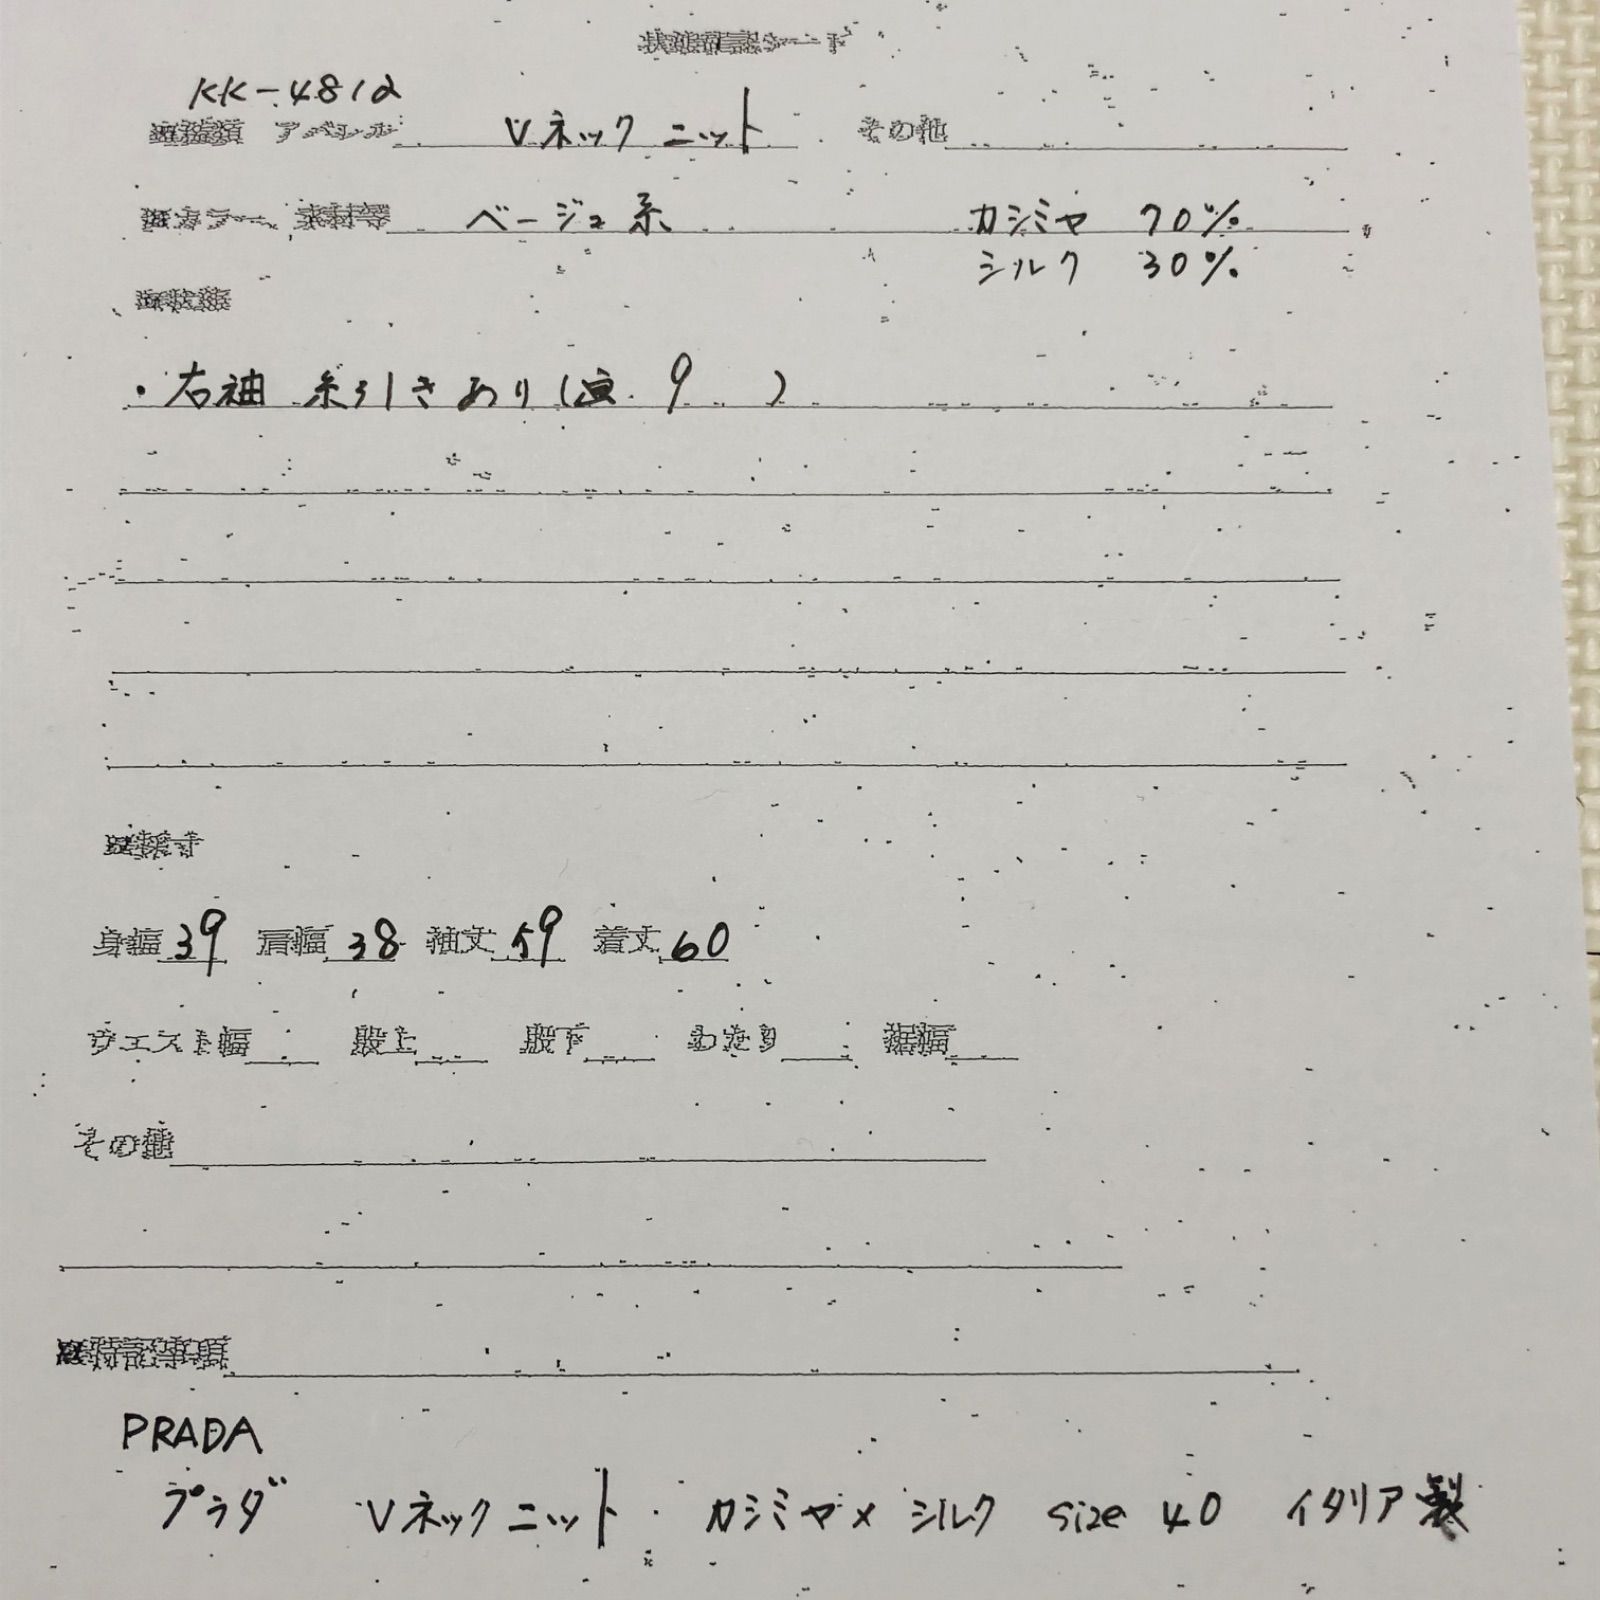 状態確認シート
KK-4812
アパレル Vネックニット その他
カラー、素材等 ベージュ系 カシミヤ 70%
シルク 30%
・右袖 糸引きあり( 9 )
採寸
身幅 39 肩幅 38 袖丈 59 着丈 60
ウエスト幅 股上 股下 わたり 裾幅
その他
特記事項
PRADA
プラダ Vネックニット カシミヤ×シルク size 40 イタリア製